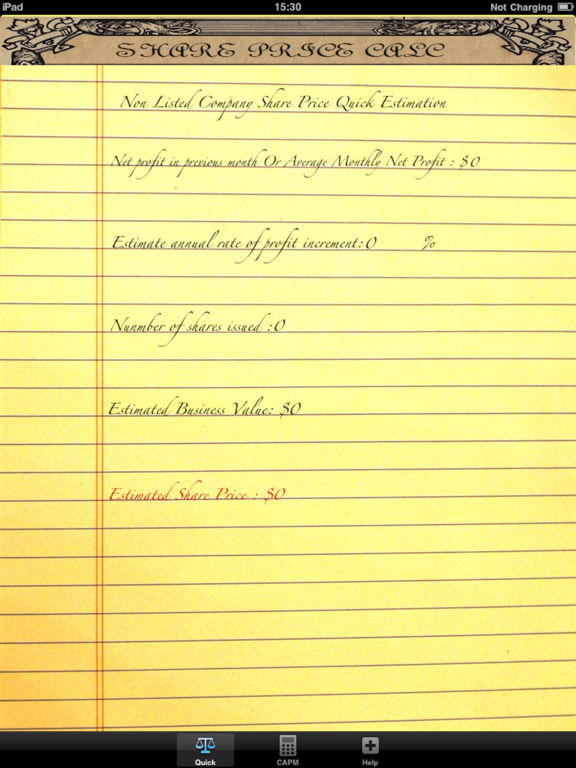 iPad 15:30 Not Charging
SHARE PRICE CALC
Non Listed Company Share Price Quick Estimation
Net profit in previous month Or Average Monthly Net Profit : $0
Estimate annual rate of profit increment: 0 %
Nunmber of shares issued : 0
Estimated Business Value: $0
Estimated Share Price : $0
Quick CAPM Help